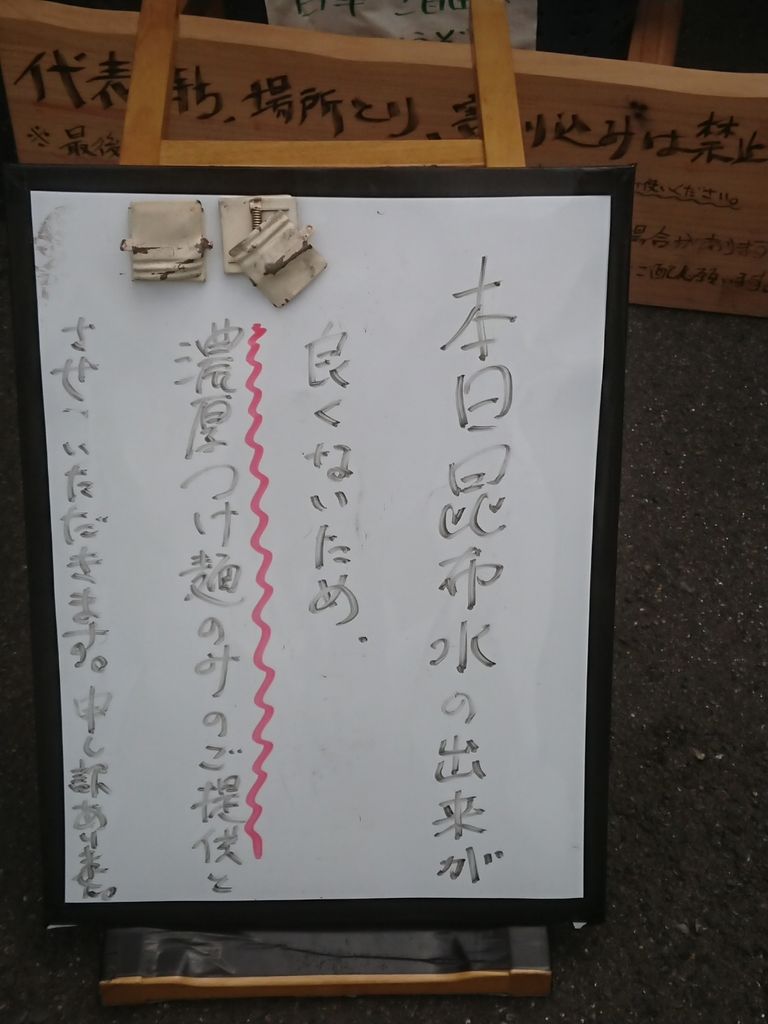 本日昆布水の出来が
良くないため、
濃厚つけ麺のみのご提供と
させていただきます。申し訳ありません。
代表待ち、場所とり、割り込みは禁止
※最後
使いください。
場合があります
ご配慮願います